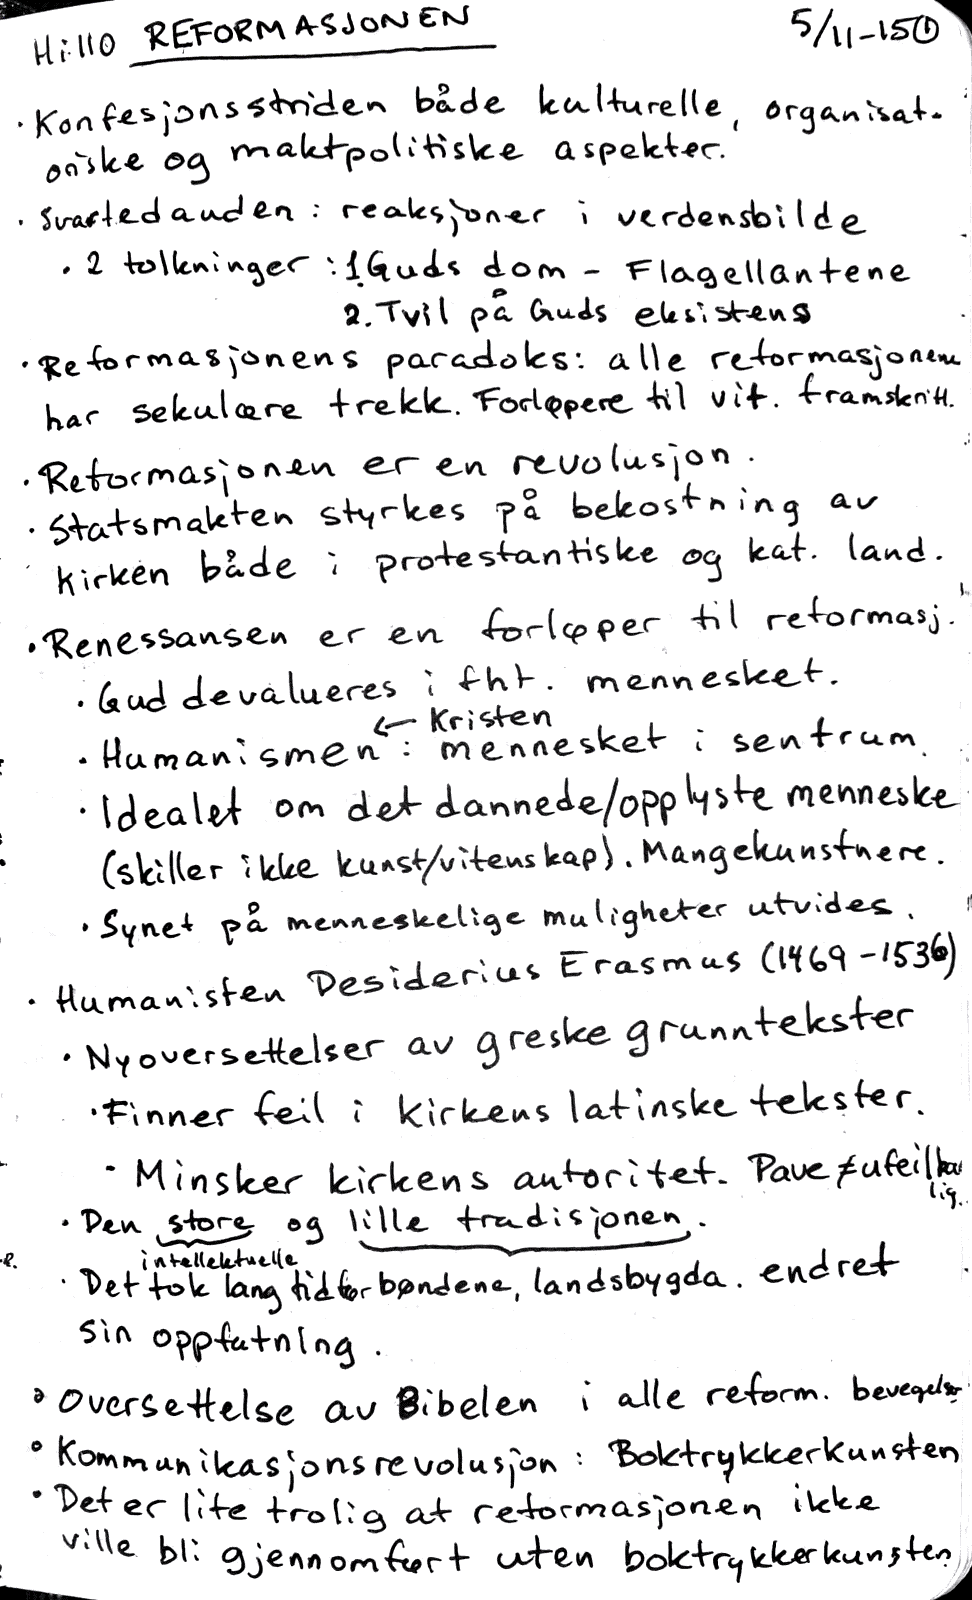 Hi:110 REFORMASJONEN 5/11-15 ①
· Konfesjonsstriden både kulturelle, organisat-
oriske og maktpolitiske aspekter.
· Svartedauden : reaksjoner i verdensbilde
· 2 tolkninger : 1. Guds dom - Flagellantene
2. Tvil på Guds eksistens
· Reformasjonens paradoks: alle reformasjonene
har sekulære trekk. Forløpere til vit. framskritt.
· Reformasjonen er en revolusjon.
· Statsmakten styrkes på bekostning av
kirken både i protestantiske og kat. land.
· Renessansen er en forløper til reformasj.
· Gud devalueres i fht. mennesket.
← Kristen
· Humanismen : mennesket i sentrum.
· Idealet om det dannede/opplyste menneske
(skiller ikke kunst/vitenskap). Mangekunstnere.
· Synet på menneskelige muligheter utvides.
· Humanisten Desiderius Erasmus (1469-1536)
· Nyoversettelser av greske grunntekster
· Finner feil i kirkens latinske tekster.
- Minsker kirkens autoritet. Pave ≠ ufeilbar
lig.
· Den store og lille tradisjonen.
intellektuelle
· Det tok lang tid før bøndene, landsbygda. endret
sin oppfatning.
· Oversettelse av Bibelen i alle reform. bevegelser
· Kommunikasjonsrevolusjon : Boktrykkerkunsten
· Det er lite trolig at reformasjonen ikke
ville bli gjennomført uten boktrykkerkunsten